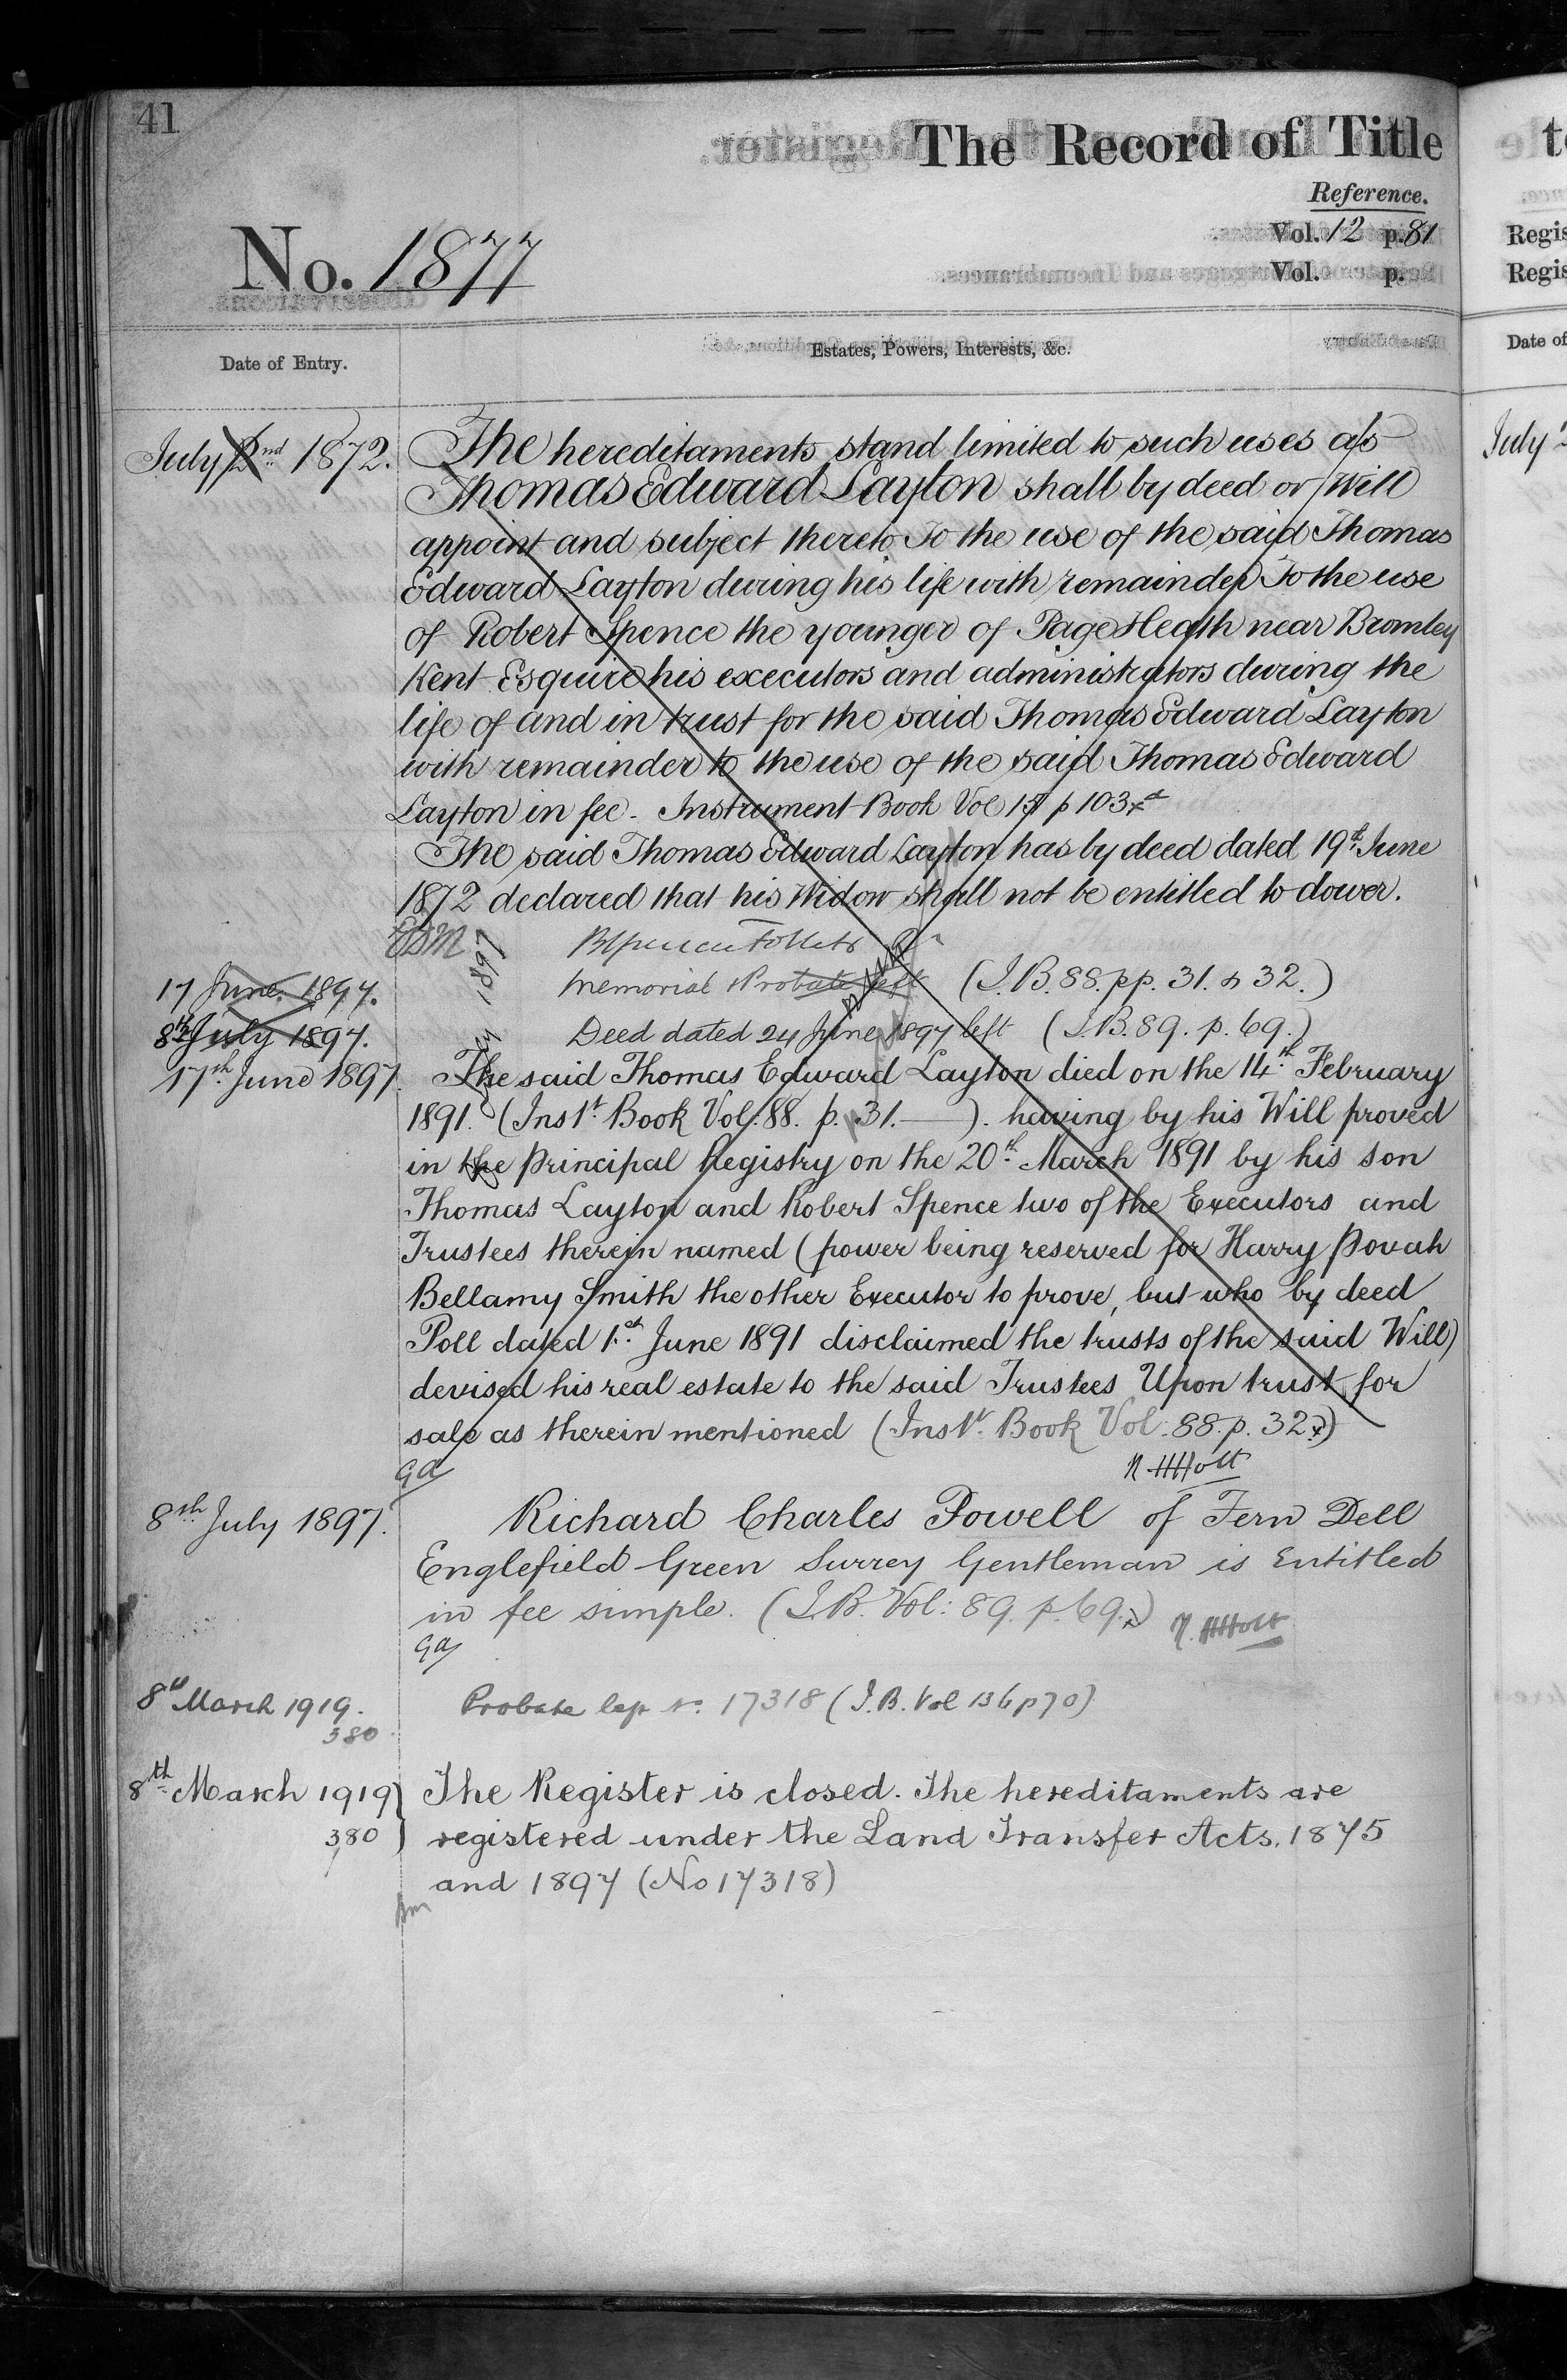 41
The Record of Title
Reference.
Vol. 12 p. 81
No. 1877
Vol. p.
Date of Entry.
Estates, Powers, Interests, &c.
July 2nd 1872.
The hereditaments stand limited to such uses as
Thomas Edward Layton shall by deed or Will
appoint and subject thereto To the use of the said Thomas
Edward Layton during his life with remainder To the use
of Robert Spence the younger of Page Heath near Bromley
Kent Esquire his executors and administrators during the
life of and in trust for the said Thomas Edward Layton
with remainder to the use of the said Thomas Edward
Layton in fee - Instrument Book Vol 15 p 103
The said Thomas Edward Layton has by deed dated 19th June
1872 declared that his Widow shall not be entitled to dower.
17 June 1897.
Memorial Probate left (I.B. 88. pp. 31. & 32.)
8th July 1897.
Deed dated 24 June 1897 left (I.B. 89. p. 69.)
17th June 1897.
The said Thomas Edward Layton died on the 14th February
1891. (Inst. Book Vol: 88. p. 31. —). having by his Will proved
in the principal Registry on the 20th March 1891 by his son
Thomas Layton and Robert Spence two of the Executors and
Trustees therein named (power being reserved for Harry Povah
Bellamy Smith the other Executor to prove, but who by deed
Poll dated 1st June 1891 disclaimed the trusts of the said Will)
devised his real estate to the said Trustees Upon trust for
sale as therein mentioned (Inst. Book Vol. 88. p. 32.)
N. Holt
8th July 1897.
Richard Charles Powell of Fern Dell
Englefield Green Surrey Gentleman is Entitled
in fee simple. (I.B. Vol: 89. p. 69.)
N. Holt
8th March 1919.
Probate (I.B. Vol 136 p 70)
380
8th March 1919
The Register is closed. The hereditaments are
380
registered under the Land Transfer Acts, 1875
and 1897 (No 17318)
Regis
Regis
Date of
July